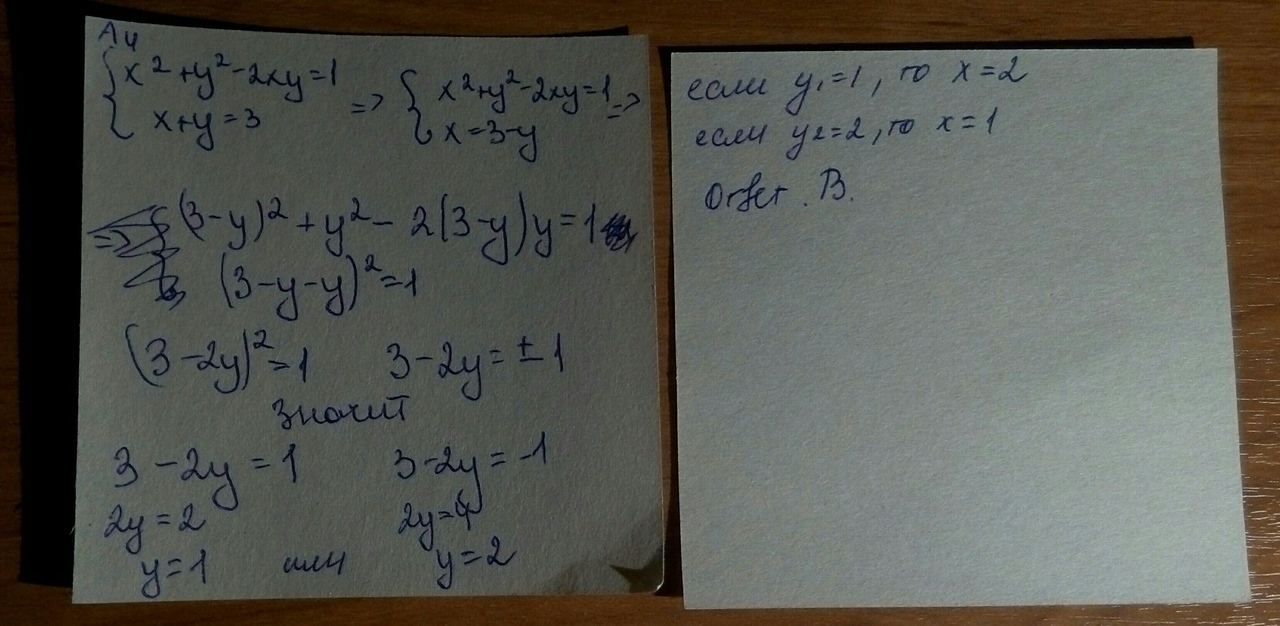 А4
{ x² + y² - 2xy = 1 => { x² + y² - 2xy = 1 =>
x + y = 3 x = 3 - y
=> (3 - y)² + y² - 2(3 - y)y = 1
(3 - y - y)² = 1
(3 - 2y)² = 1 3 - 2y = ± 1
значит
3 - 2y = 1 3 - 2y = -1
2y = 2 2y = 4
y = 1 или y = 2
если y₁ = 1, то x = 2
если y₂ = 2, то x = 1
Ответ. В.